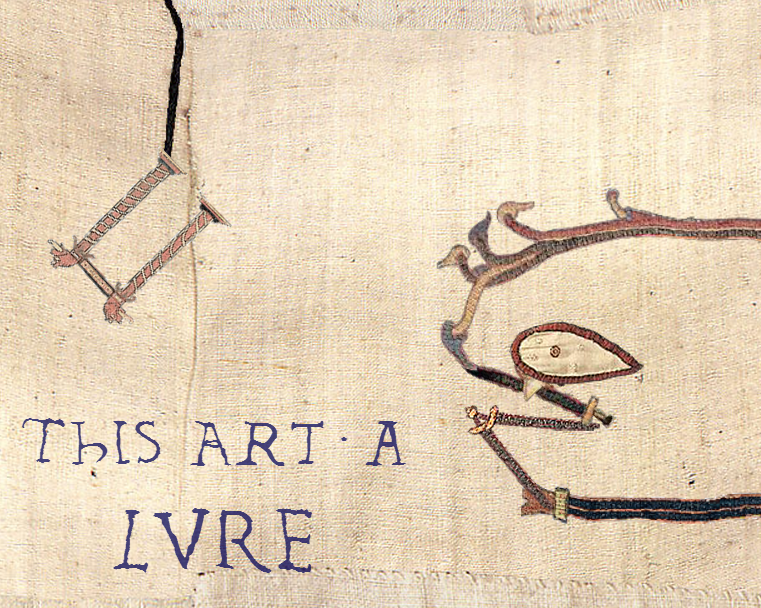 THIS ART · A
LVRE